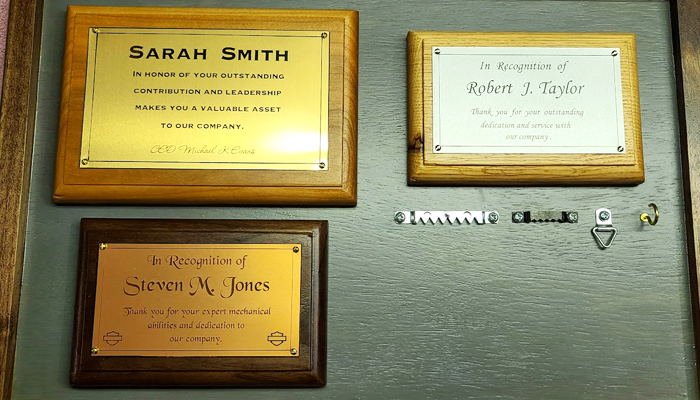 SARAH SMITH
IN HONOR OF YOUR OUTSTANDING
CONTRIBUTION AND LEADERSHIP
MAKES YOU A VALUABLE ASSET
TO OUR COMPANY.
CEO Michael K Evans
In Recognition of
Robert J. Taylor
Thank you for your outstanding
dedication and service with
our company.
In Recognition of
Steven M. Jones
Thank you for your expert mechanical
abilities and dedication to
our company.